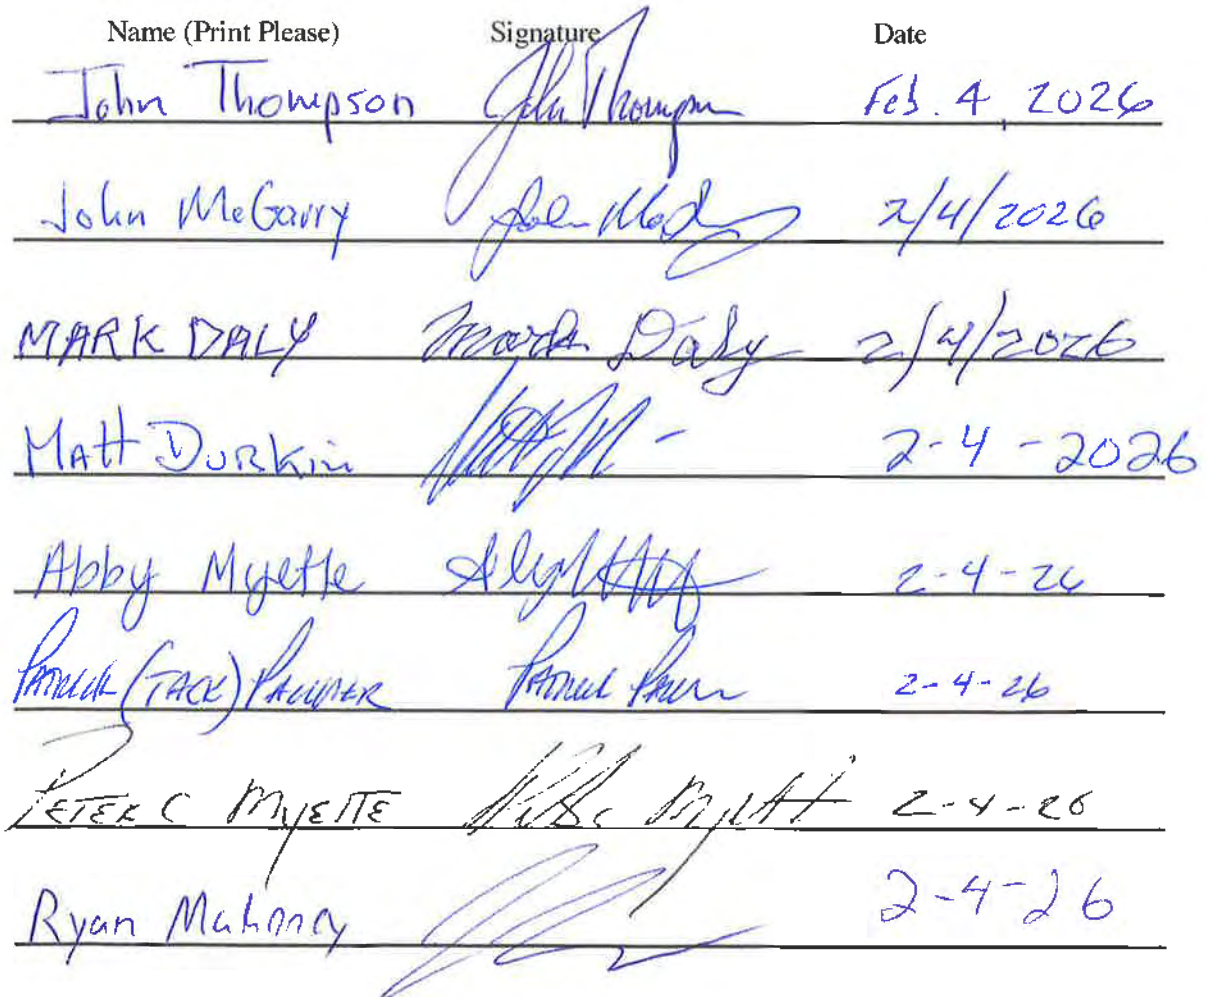 Name (Print Please) Signature Date
John Thompson John Thompson Feb. 4, 2026
John McGarry John McGarry 2/4/2026
MARK DALY Mark Daly 2/4/2026
Matt Durkin 2-4-2026
Abby Myette 2-4-26
Patrick (Tack) Patrick 2-4-26
Peter C Myette Peter C Myette 2-4-26
Ryan Mahoney 2-4-26